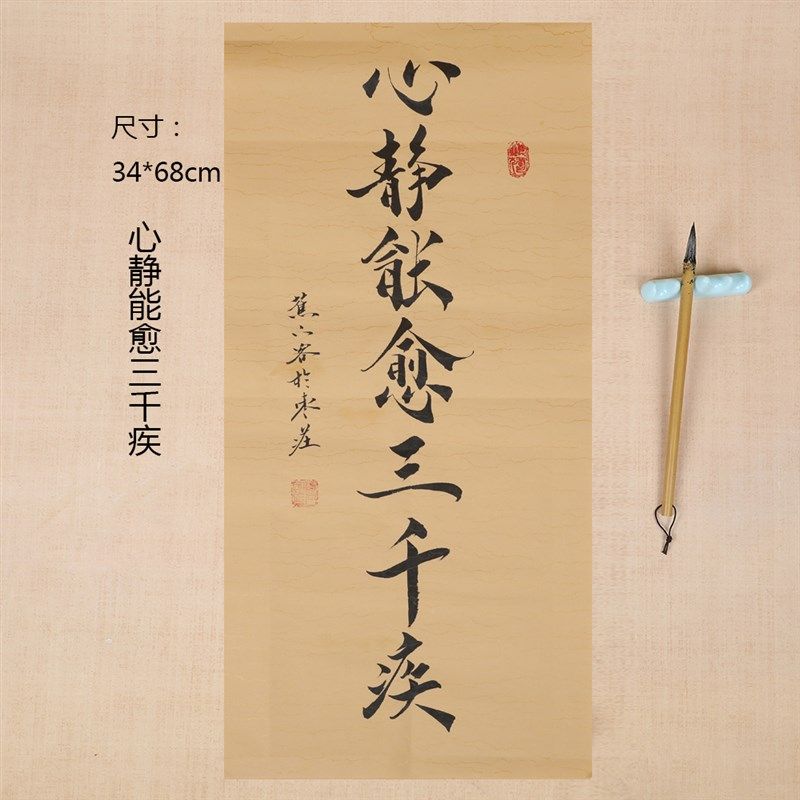 尺寸：
34*68cm
心静能愈三千疾
心静能愈三千疾
蕉下客於枣庄